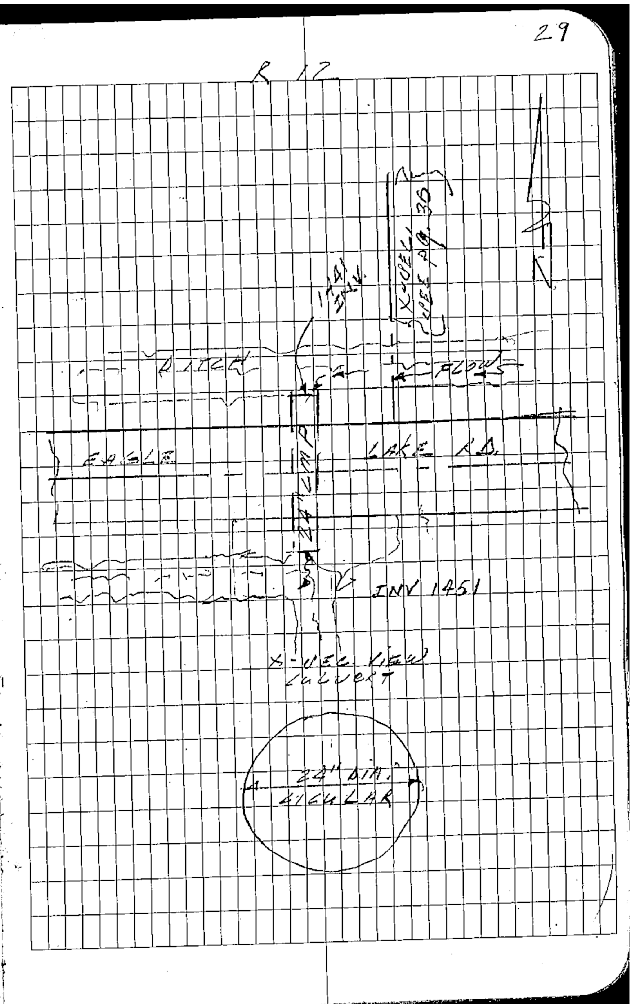 29
R 12
1481
INV.
X-SEC.
SEE PG. 30
N
DITCH
FLOWS
EAGLE LAKE RD.
24" CMP
INV 1451
X-SEC VIEW
CULVERT
24" DIA.
CICULAR